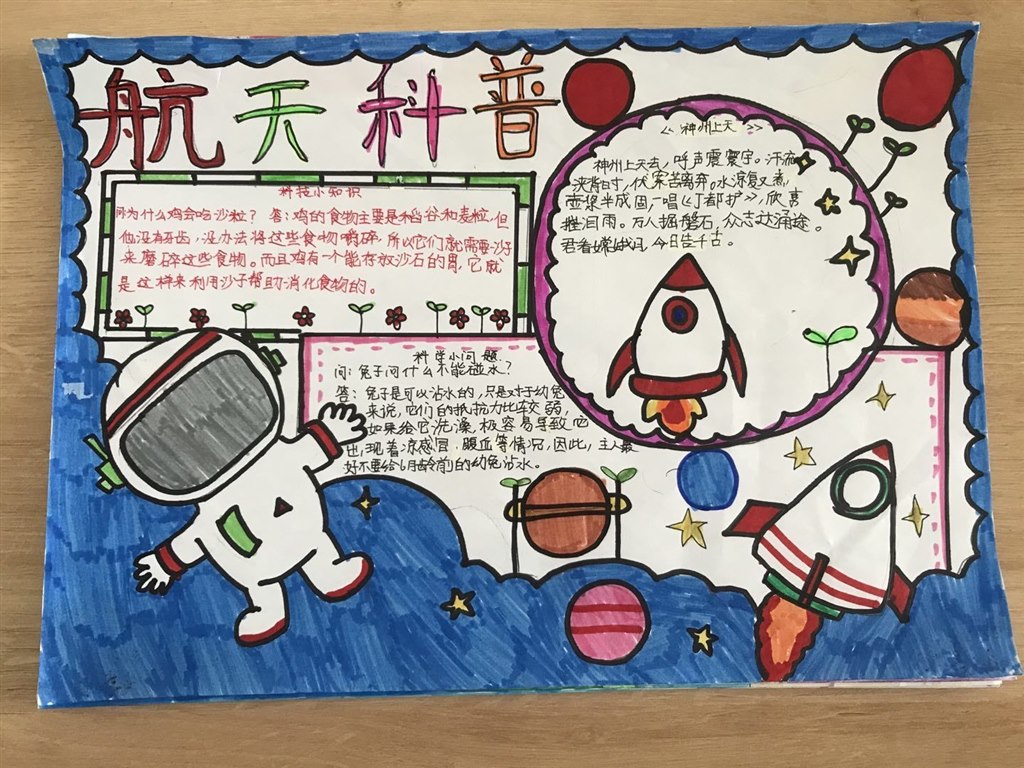 航天科普
科技小知识
问为什么鸡会吃沙粒？ 答：鸡的食物主要是稻谷和麦粒，但
他没有牙齿，没办法将这些食物嚼碎，所以它们就需要沙子
来磨碎这些食物。而且鸡有一个能存放沙石的胃，它就
是这样来利用沙子帮助消化食物的。
<<神州上天>>
神州上天去，呼声震寰宇。汗流
浃背时，伏案苦离弃。水凉复又煮，
壶浆半成固一唱《丁都护》，欣喜
挫泪雨。万人掘磐石，众志达涌途。
君看嫦娥月，今日告千古。
科学小问题
问：兔子问什么不能碰水？
答：兔子是可以沾水的，只是对于幼兔
来说，它们的抵抗力比较弱，
如果给它洗澡，极容易导致它
出现着凉感冒，腹血等情况，因此，主人最
好不要给6月龄前的幼兔沾水。